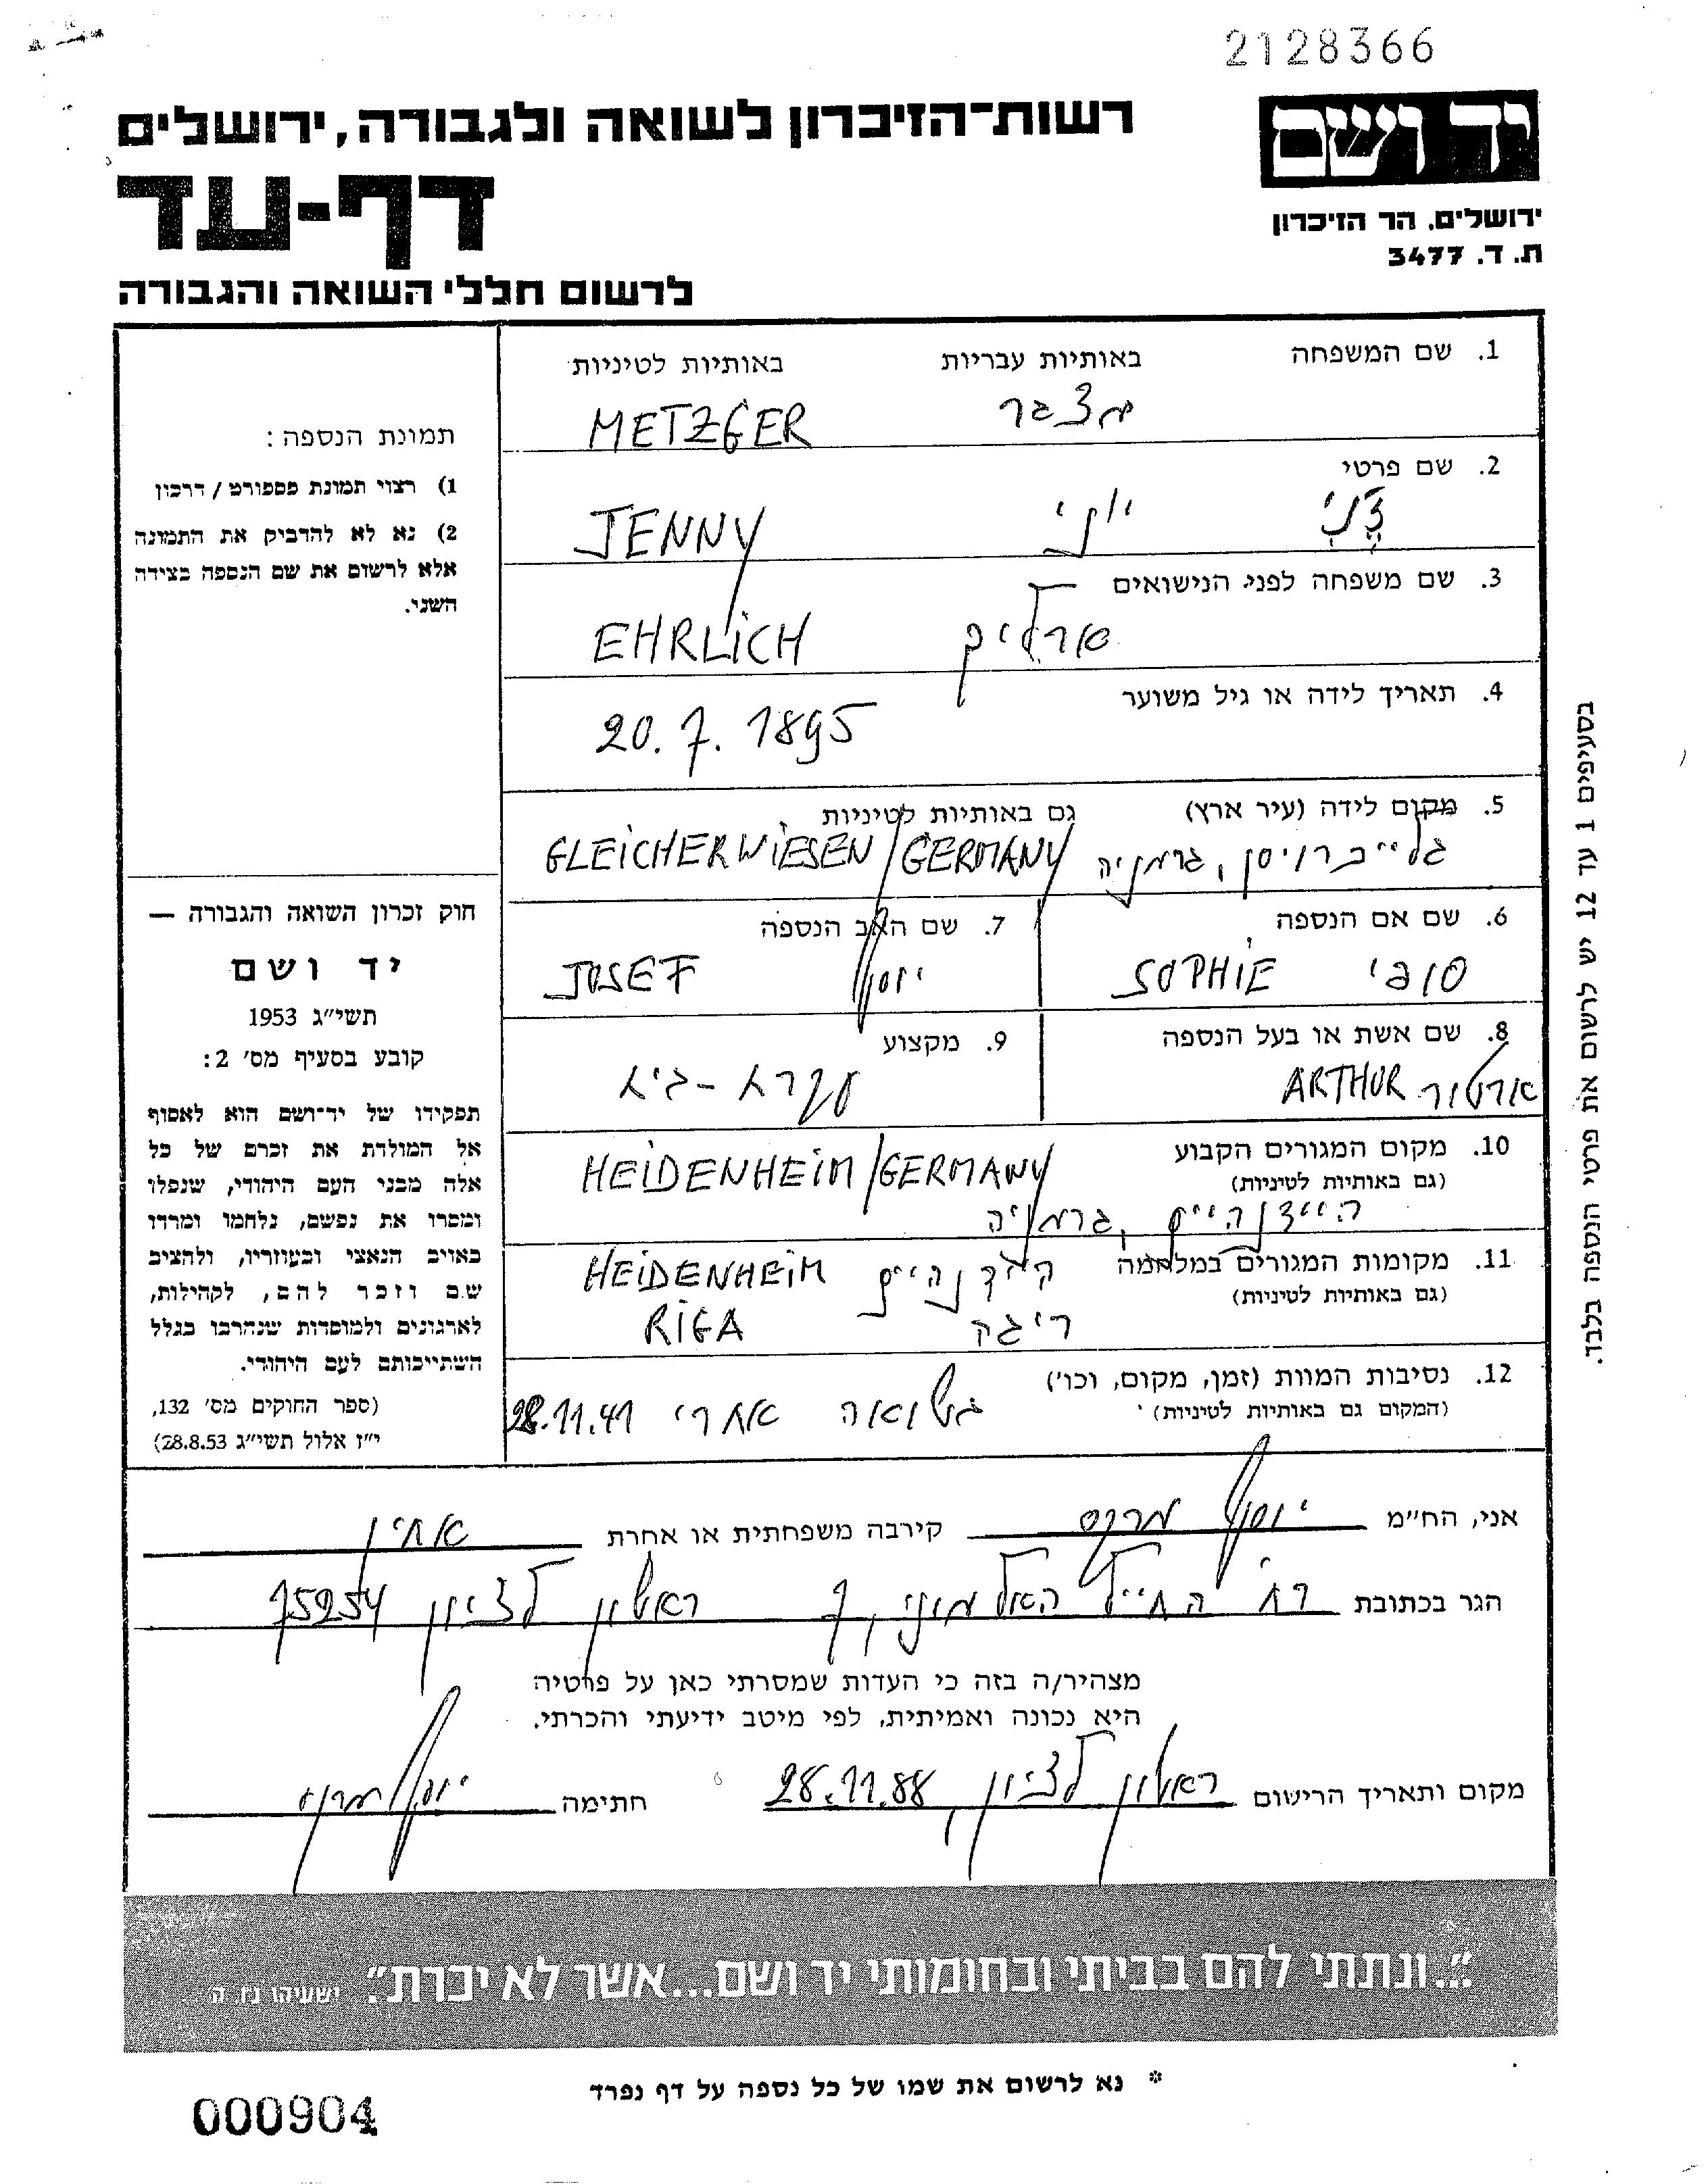 2128366
יד ושם
רשות־הזיכרון לשואה ולגבורה, ירושלים
דף-עד
ירושלים. הר הזיכרון
ת. ד. 3477
לרשום חללי השואה והגבורה
1. שם המשפחה באותיות עבריות באותיות לטיניות
מצגר METZGER
2. שם פרטי
צֶ'נִי יוני JENNY
3. שם משפחה לפני הנישואים
ארליך EHRLICH
4. תאריך לידה או גיל משוער
20.7.1895
5. מקום לידה (עיר ארץ) גם באותיות לטיניות
גלייכרויסן, גרמניה GLEICHERWIESEN/GERMANY
6. שם אם הנספה
סופי SOPHIE
7. שם האב הנספה
יוסף JOSEF
8. שם אשת או בעל הנספה
ארטור ARTHUR
9. מקצוע
עקרת-בית
10. מקום המגורים הקבוע
(גם באותיות לטיניות)
HEIDENHEIM/GERMANY
היידנהיים, גרמניה
11. מקומות המגורים במלחמה
(גם באותיות לטיניות)
היידנהיים HEIDENHEIM
ריגה RIGA
12. נסיבות המוות (זמן, מקום, וכו')
(המקום גם באותיות לטיניות)
בשואה אחרי 28.11.41
תמונת הנספה:
1) רצוי תמונת פספורט / דרכון
2) נא לא להדביק את התמונה
אלא לרשום את שם הנספה בצידה
השני.
חוק זכרון השואה והגבורה —
יד ושם
תשי״ג 1953
קובע בסעיף מס׳ 2:
תפקידו של יד־ושם הוא לאסוף
אל המולדת את זכרם של כל
אלה מבני העם היהודי, שנפלו
ומסרו את נפשם, נלחמו ומרדו
באויב הנאצי ובעוזריו, ולהציב
שם וזכר להם, לקהילות,
לארגונים ולמוסדות שנהרבו בגלל
השתייכותם לעם היהודי.
(ספר החוקים מס׳ 132,
י״ז אלול תשי״ג 28.8.53)
בסעיפים 1 עד 12 יש לרשום את פרטי הניספה בלבד.
אני, הח״מ יוסף מרקס קירבה משפחתית או אחרת אחין
הגר בכתובת רח' החייל האלמוני, 7 ראשון לציון 75254
מצהיר/ה בזה כי העדות שמסרתי כאן על פרטיה
היא נכונה ואמיתית, לפי מיטב ידיעתי והכרתי.
מקום ותאריך הרישום ראשון לציון, 28.11.88 חתימה יוסף מרקס
״...ונתתי להם בביתי ובחומותי יד ושם...אשר לא יכרת״. ישעיהו נו, ה
* נא לרשום את שמו של כל נספה על דף נפרד
000904